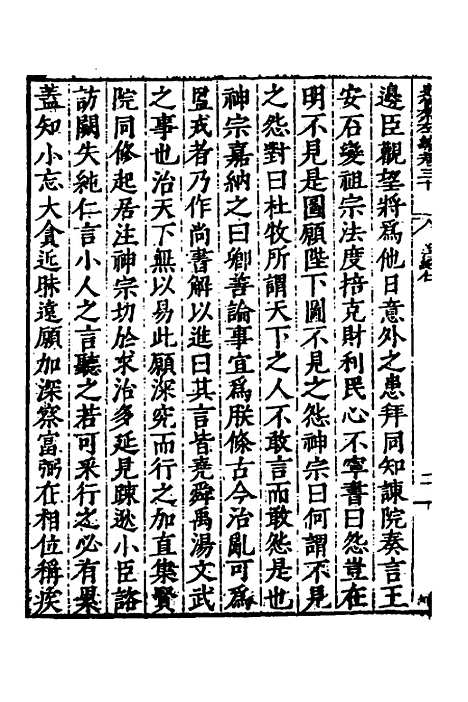 邊臣觀望將爲他日意外之患拜同知諫院奏言王
安石變祖宗法度掊克財利民心不寧書曰怨豈在
明不見是圖願陛下圖不見之怨神宗曰何謂不見
之怨對曰杜牧所謂天下之人不敢言而敢怨是也
神宗嘉納之曰卿善論事宜爲朕條古今治亂可爲
監戒者乃作尚書解以進曰其言皆堯舜禹湯文武
之事也治天下無以易此願深究而行之加直集賢
院同修起居注神宗切於求治多延見疎逖小臣諮
訪闕失純仁言小人之言聽之若可采行之必有累
蓋知小忘大貪近昧遠願加深察富弼在相位稱疾